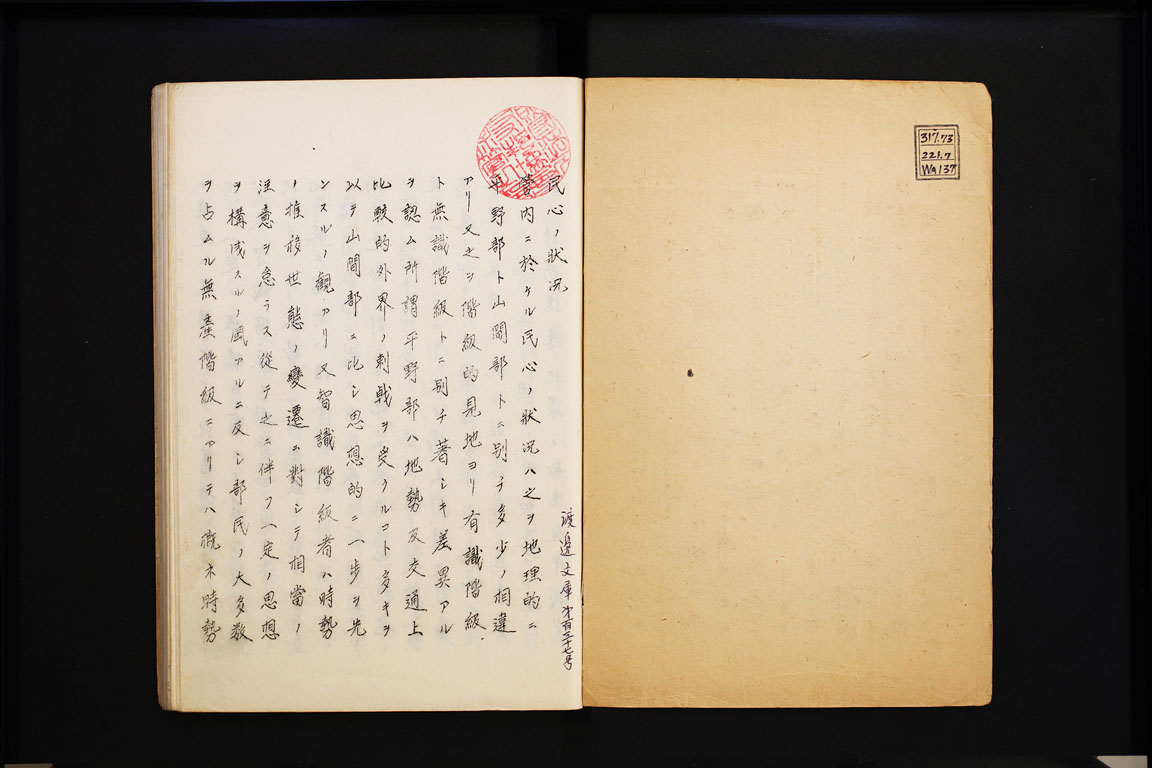 317.73
221.7
Wa137
渡邊文庫才百三十七号
民心ノ狀況
管内ニ於ケル民心ノ狀況ハ之ヲ地理的ニ
平野部ト山間部トニ別チ多少ノ相違
アリ又之ヲ階級的見地ヨリ有識階級
ト無識階級トニ別チ著シキ差異アル
ヲ認ム所謂平野部ハ地勢及交通上
比較的外界ノ刺戟ヲ受クルコト多キヲ
以テ山間部ニ比シ思想的ニ一歩ヲ先
ンスルノ観アリ又智識階級者ハ時勢
ノ推移世態ノ變遷ニ對シテ相當ノ
注意ヲ怠ラス從テ之ニ伴フ一定ノ思想
ヲ構成スルノ風アルニ反シ部民ノ大多数
ヲ占ムル無産階級ニアリテハ概木時勢